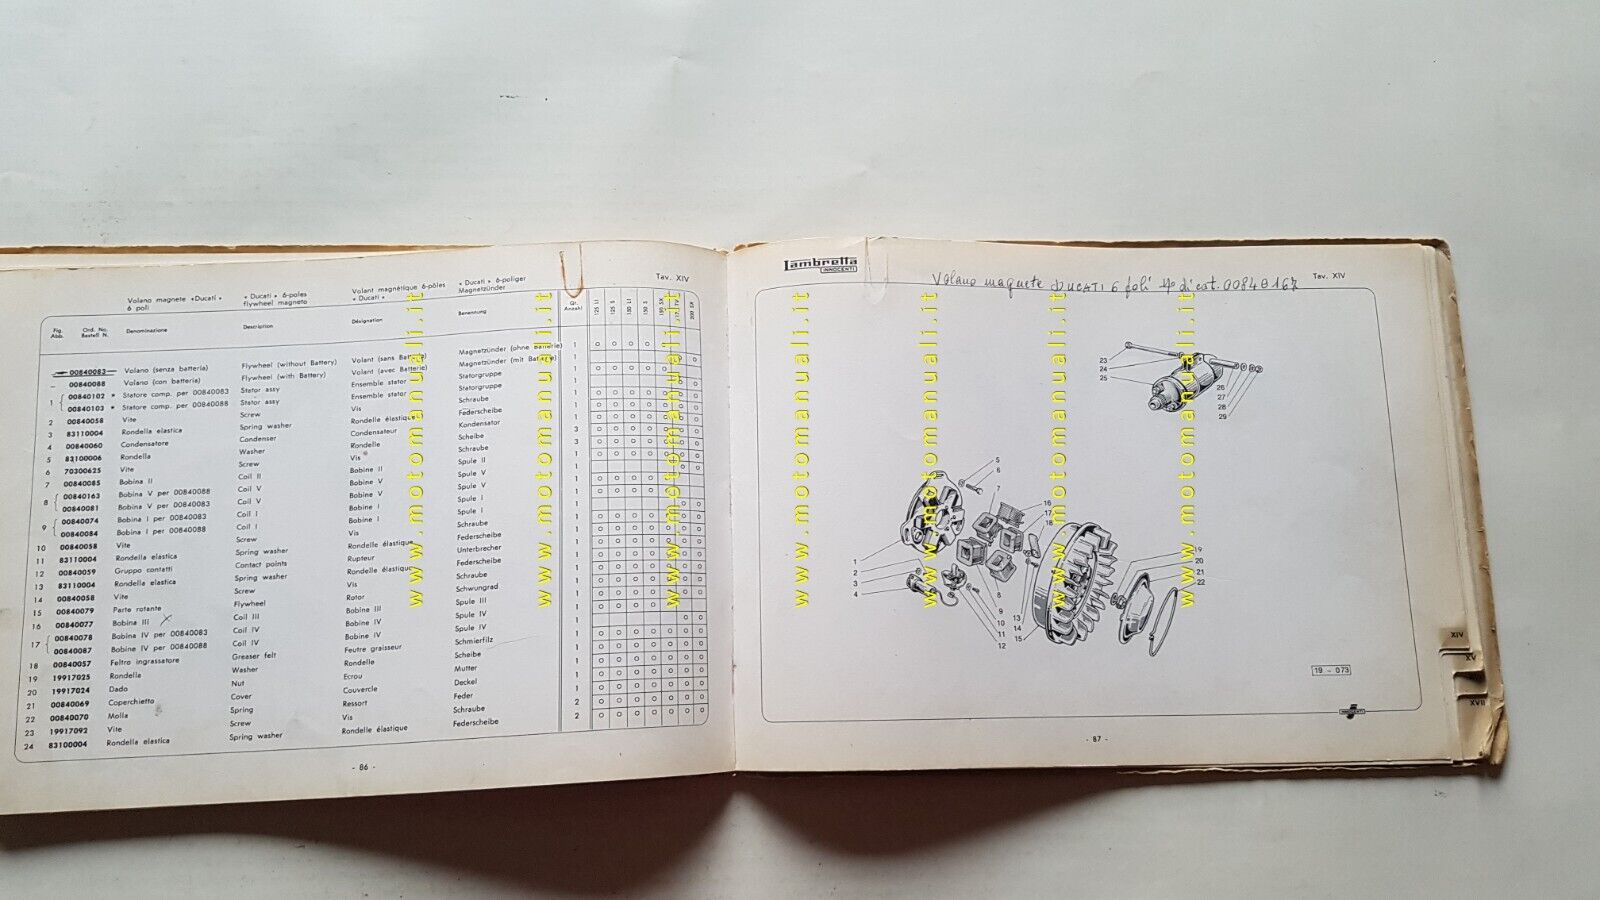 Volano magnete «Ducati» 6 poli
« Ducati » 6-poles flywheel magneto
Volant magnétique 6-pôles « Ducati »
« Ducati » 6-poliger Magnetzünder
Tav. XIV
Fig. Abb.
Ord. No. Bestell N.
Denominazione
Description
Désignation
Benennung
Qt. Anzahl
125 LI
125 S
150 LI
150 S
150 SX
175 TV
200 SX
00840083 Volano (senza batteria) Flywheel (without Battery) Volant (sans Batterie) Magnetzünder (ohne Batterie) 1
– 00840088 Volano (con batteria) Flywheel (with Battery) Volant (avec Batterie) Magnetzünder (mit Batterie) 1
1 00840102 * Statore comp. per 00840083 Stator assy Ensemble stator Statorgruppe 1
00840103 * Statore comp. per 00840088 Stator assy Ensemble stator Statorgruppe 1
2 00840058 Vite Screw Vis Schraube
3 83110004 Rondella elastica Spring washer Rondelle élastique Federscheibe
4 00840060 Condensatore Condenser Condensateur Kondensator
5 83100006 Rondella Washer Rondelle Scheibe
6 70300625 Vite Screw Vis Schraube
7 00840085 Bobina II Coil II Bobine II Spule II
8 00840163 Bobina V per 00840088 Coil V Bobine V Spule V
00840081 Bobina V per 00840083 Coil V Bobine V Spule V
9 00840074 Bobina I per 00840083 Coil I Bobine I Spule I
00840084 Bobina I per 00840088 Coil I Bobine I Spule I
10 00840058 Vite Screw Vis Schraube
11 83110004 Rondella elastica Spring washer Rondelle élastique Federscheibe
12 00840059 Gruppo contatti Contact points Rupteur Unterbrecher
13 83110004 Rondella elastica Spring washer Rondelle élastique Federscheibe
14 00840058 Vite Screw Vis Schraube
15 00840079 Parte rotante Flywheel Rotor Schwungrad
16 00840077 Bobina III Coil III Bobine III Spule III
17 00840078 Bobina IV per 00840083 Coil IV Bobine IV Spule IV
00840087 Bobina IV per 00840088 Coil IV Bobine IV Spule IV
18 00840057 Feltro ingrassatore Greaser felt Feutre graisseur Schmierfilz
19 19917025 Rondella Washer Rondelle Scheibe
20 19917024 Dado Nut Ecrou Mutter
21 00840069 Coperchietto Cover Couvercle Deckel
22 00840070 Molla Spring Ressort Feder
23 19917092 Vite Screw Vis Schraube 2
24 83100004 Rondella elastica Spring washer Rondelle élastique Federscheibe 2
- 86 -
Lambretta
INNOCENTI
Volano magnete DUCATI 6 poli N° di cat. 00840167
Tav. XIV
23
24
25
26
27
28
29
5
6
7
16
17
18
1
2
3
4
8
9
10
11
12
13
14
15
19
20
21
22
19 - 073
INNOCENTI
- 87 -
XIV
XV
XVII
www.motomanuali.it
www.motomanuali.it
www.motomanuali.it
www.motomanuali.it
www.motomanuali.it
www.motomanuali.it
www.motomanuali.it